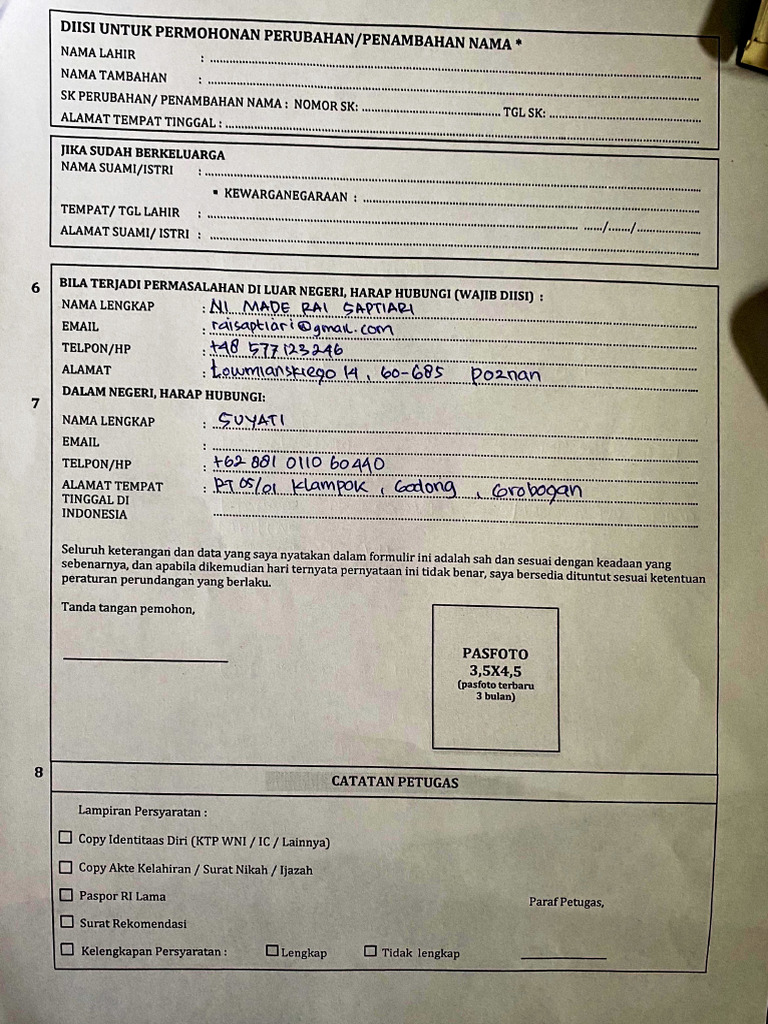 DIISI UNTUK PERMOHONAN PERUBAHAN/PENAMBAHAN NAMA *
NAMA LAHIR :
NAMA TAMBAHAN :
SK PERUBAHAN/ PENAMBAHAN NAMA : NOMOR SK: TGL SK:
ALAMAT TEMPAT TINGGAL :
JIKA SUDAH BERKELUARGA
NAMA SUAMI/ISTRI :
▪ KEWARGANEGARAAN :
TEMPAT/ TGL LAHIR : ....../......./
ALAMAT SUAMI/ ISTRI :
6 BILA TERJADI PERMASALAHAN DI LUAR NEGERI, HARAP HUBUNGI (WAJIB DIISI) :
NAMA LENGKAP : NI MADE RAI SAPTIARI
EMAIL : raisaptiari@gmail.com
TELPON/HP : +48 577123246
ALAMAT : Łowmianskiego 14, 60-685 Poznan
7 DALAM NEGERI, HARAP HUBUNGI:
NAMA LENGKAP : SUYATI
EMAIL :
TELPON/HP : +62 881 0110 60440
ALAMAT TEMPAT : RT 05/01 Klampok, Godong, Grobogan
TINGGAL DI
INDONESIA
Seluruh keterangan dan data yang saya nyatakan dalam formulir ini adalah sah dan sesuai dengan keadaan yang
sebenarnya, dan apabila dikemudian hari ternyata pernyataan ini tidak benar, saya bersedia dituntut sesuai ketentuan
peraturan perundangan yang berlaku.
Tanda tangan pemohon,
PASFOTO
3,5X4,5
(pasfoto terbaru
3 bulan)
8 CATATAN PETUGAS
Lampiran Persyaratan :
Copy Identitaas Diri (KTP WNI / IC / Lainnya)
Copy Akte Kelahiran / Surat Nikah / Ijazah
Paspor RI Lama
Paraf Petugas,
Surat Rekomendasi
Kelengkapan Persyaratan : Lengkap Tidak lengkap